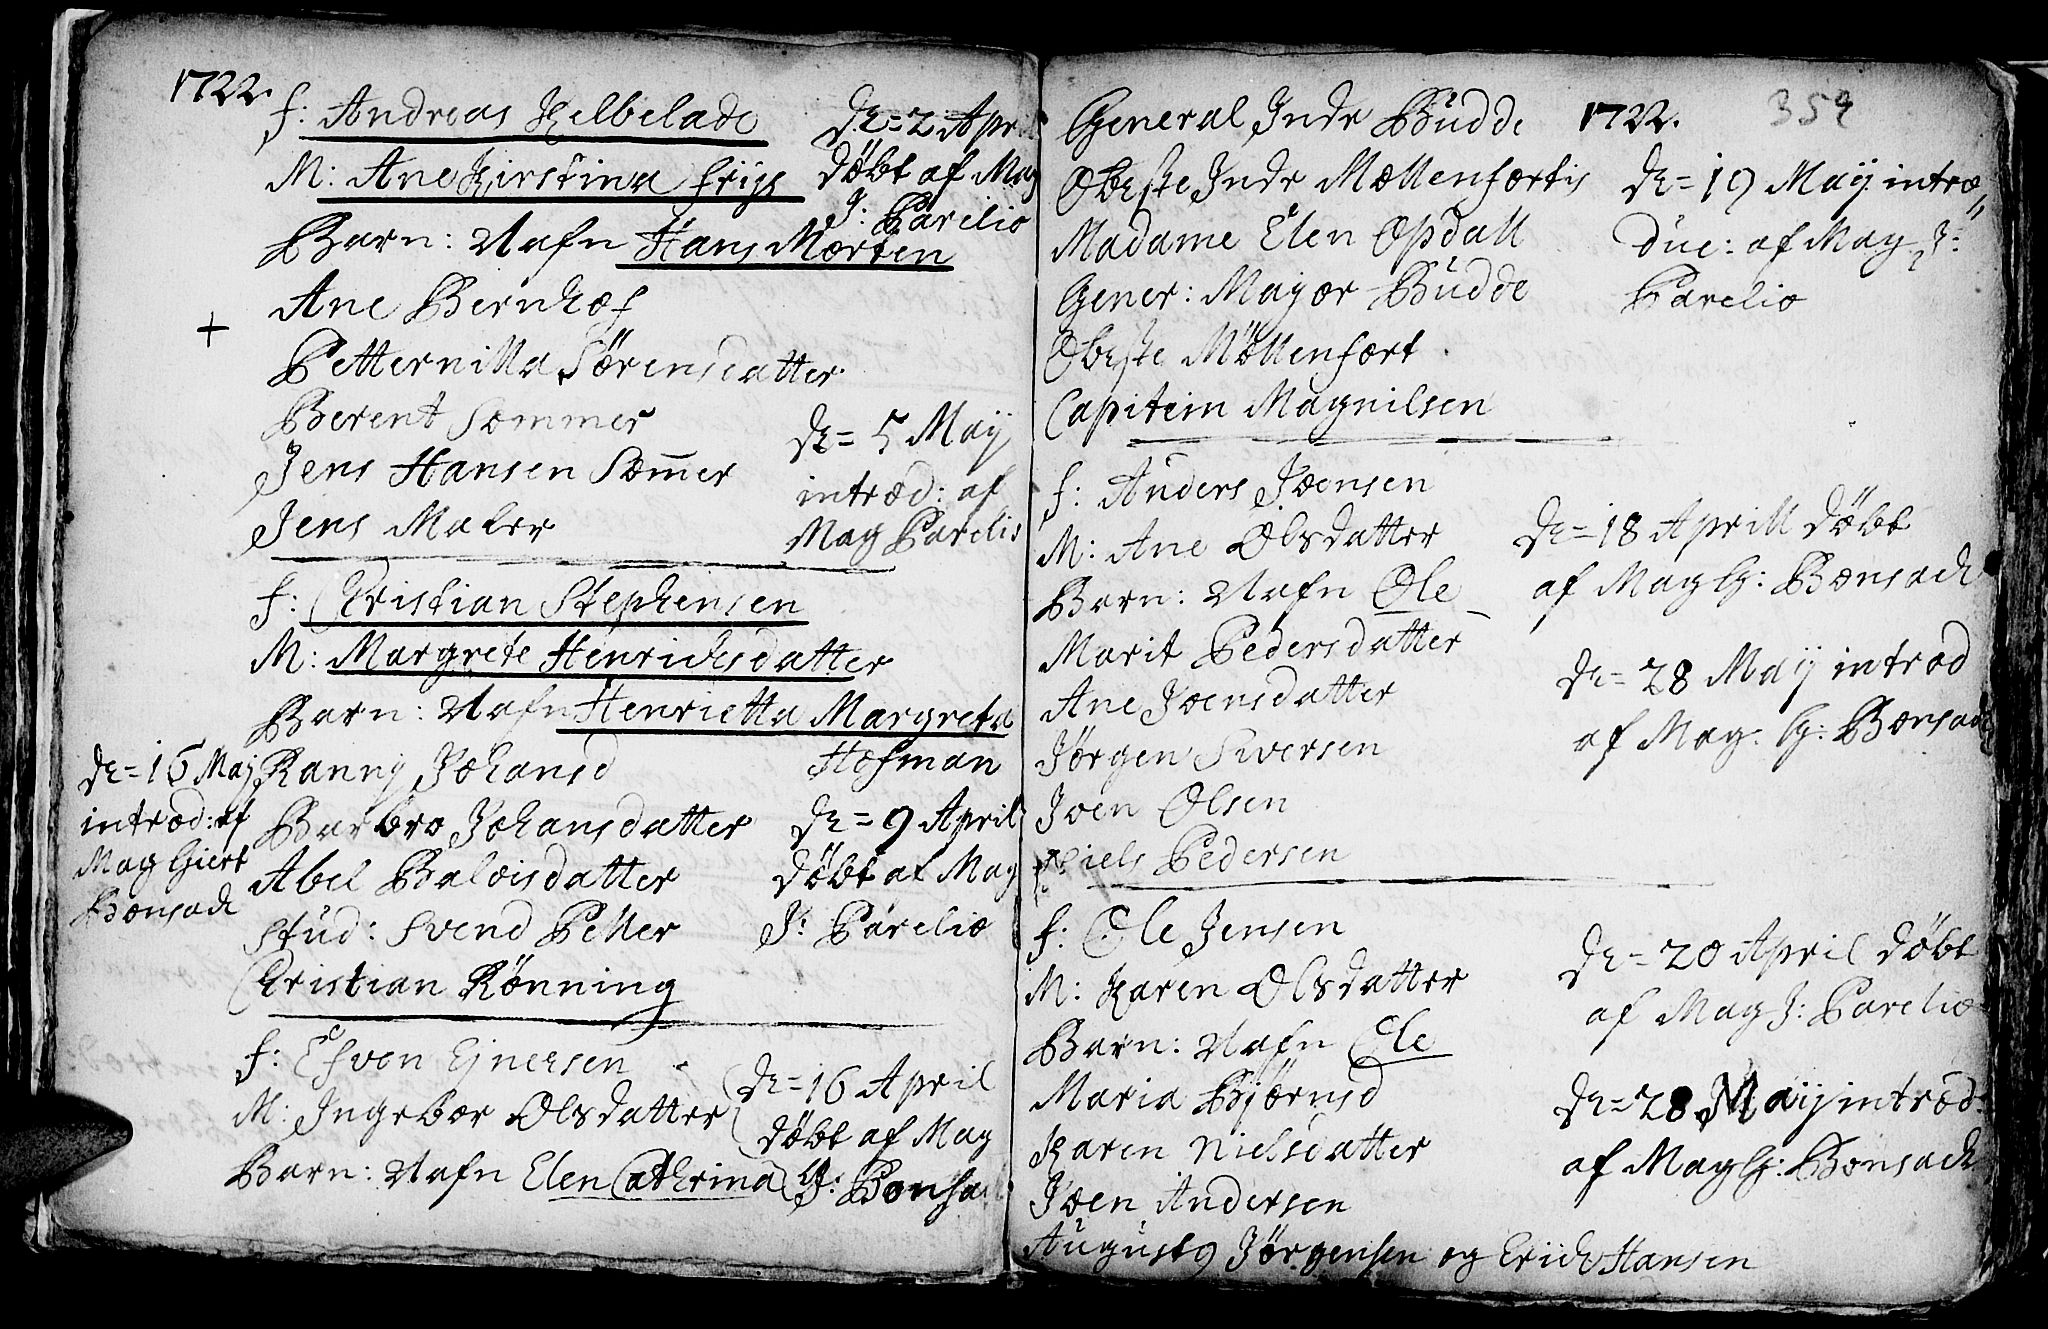 1722.
f: Andreas Kelbelade
M: Ane Kirstina friis
Barn: Nafn Hans Morten
Ane Bernhof
+
Petternilla Sörensdatter
Berent Sommer
Jens Hansen Som̄er
Jens Maler
d= 2 Apri
döbt af Mag
J: Parelio
d= 5 Maij
introd: af
Mag Parelio
f: Christian Stephensen
M: Margrete Henrichsdatter
Barn: Nafn Henrietta Margreta
Hofman
Ranny Johansd
Barbro Johansdatter
Abel Baltisdatter
Stud: Svend Petter
Christian Rönning
d= 16 Maj
introd: af
Mag Giert
Bonsach
d= 9 April
döbt af Mag
J: Parelio
f: Esven Ejnersen
M: Ingebor Olsdatter
Barn: Nafn Elen Cathrina
d= 16 April
döbt af Mag
G: Bonsa
General Inde Budde
1722.
359
Oberste Inde Mollenfortis
Madame Elen Opdall
Gener: Major Budde
Oberste Möllenfort
Capitein Magnilsen
d= 19 Maij intro
duc: af Mag J:
Parelio
f: Anders Joensen
M: Ane Olsdatter
Barn: Nafn Ole
Marit Pedersdatter
Ane Joensdatter
Jörgen Siversen
Joen Olsen
Niels Pedersen
d= 18 Aprill döbt
af Mag G: Bonsach
d= 28 Maij introd
af Mag. G: Bonsach
f: Ole Jensen
M: Karen Olsdatter
Barn: Nafn Ole
Maria Bjørnsd
Karen Nielsdatter
Joen Andersen
Augustq Jörgensen og Erich Hansen
d= 20 April döbt
af Mag J: Parelio
d= 28 Maij introd:
af Mag G: Bonsach